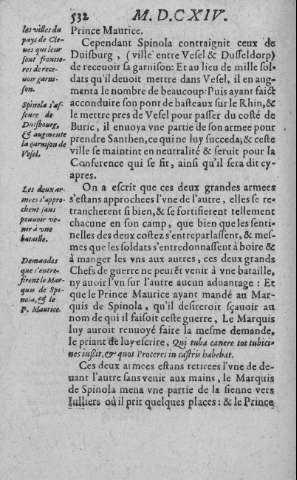 532 M. D. CXIV.
les villes du
pays de Cle-
ues qui leur
sont frontie-
res de rece-
uoir garni-
son.
Spinola s'as-
seure de
Duisbourg,
& augmente
la garnison de
Vesel.
Les deux ar-
mees s'appro-
chent sans
pouuoir ve-
nir à vne
bataille.
Demandes
que s'entre-
firent le Mar-
quis de Spi-
nola, & le
P. Maurice.
Prince Maurice.
Cependant Spinola contraignit ceux de
Duisburg, (ville entre Vesel & Dusseldorp)
de receuoir sa garnison: Et au lieu de mille sol-
dats qu'il deuoit mettre dans Vesel, il en aug-
menta le nombre de beaucoup: Puis ayant faict
acconduire son pont de basteaux sur le Rhin, &
le mettre pres de Vesel pour passer du costé de
Buric, il enuoya vne partie de son armee pour
prendre Santhen, ce qui ne luy succeda; & ceste
ville se maintint en neutralité & seruit pour la
Conference qui se fit, ainsi qu'il sera dit cy-
apres.
On a escrit que ces deux grandes armees
s'estans approchees l'vne de l'autre, elles se re-
trancherent si bien, & se fortifierent tellement
chacune en son camp, que bien que les senti-
nelles des deux costez s'entreparlassent, & mes-
mes que les soldats s'entredonnassent à boire &
à manger les vns aux autres, ces deux grands
Chefs de guerre ne peurēt venir à vne bataille,
ny auoir l'vn sur l'autre aucun aduantage: Et
que le Prince Maurice ayant mandé au Mar-
quis de Spinola, qu'il desireroit sçauoir au
nom de qui il faisoit ceste guerre, Le Marquis
luy auroit renuoyé faire la mesme demande,
le priant de luy escrire, Qui tuba canere tot tubici-
nes iussit, & quos Proceres in castris habebat.
Ces deux armees estans retirees l'vne de de-
uant l'autre sans venir aux mains, le Marquis
de Spinola mena vne partie de la sienne vers
Iulliers où il prit quelques places: & le Prince